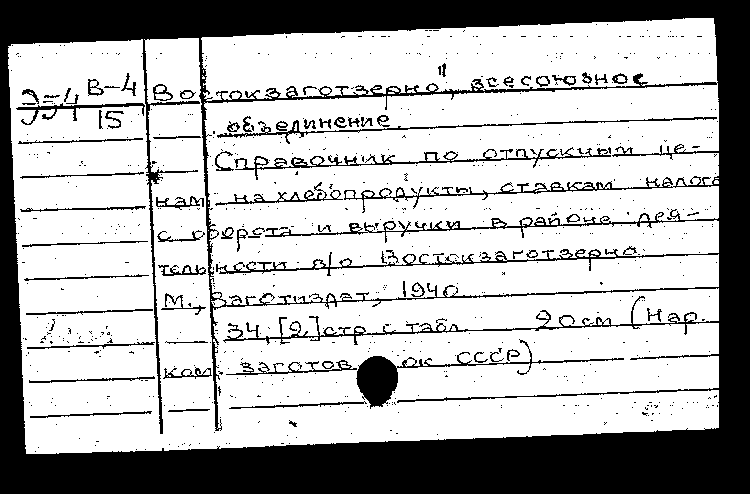 Э54 В-4/15
Востокзаготзерно", всесоюзное
объединение.
Справочник по отпускным це-
нам на хлебопродукты, ставкам налога
с оборота и выручки в районе дея-
тельности в/о Востокзаготзерно.
М., Заготиздат, 1940
34, [2] стр с табл. 20 см (Нар.
ком. заготов ок СССР).